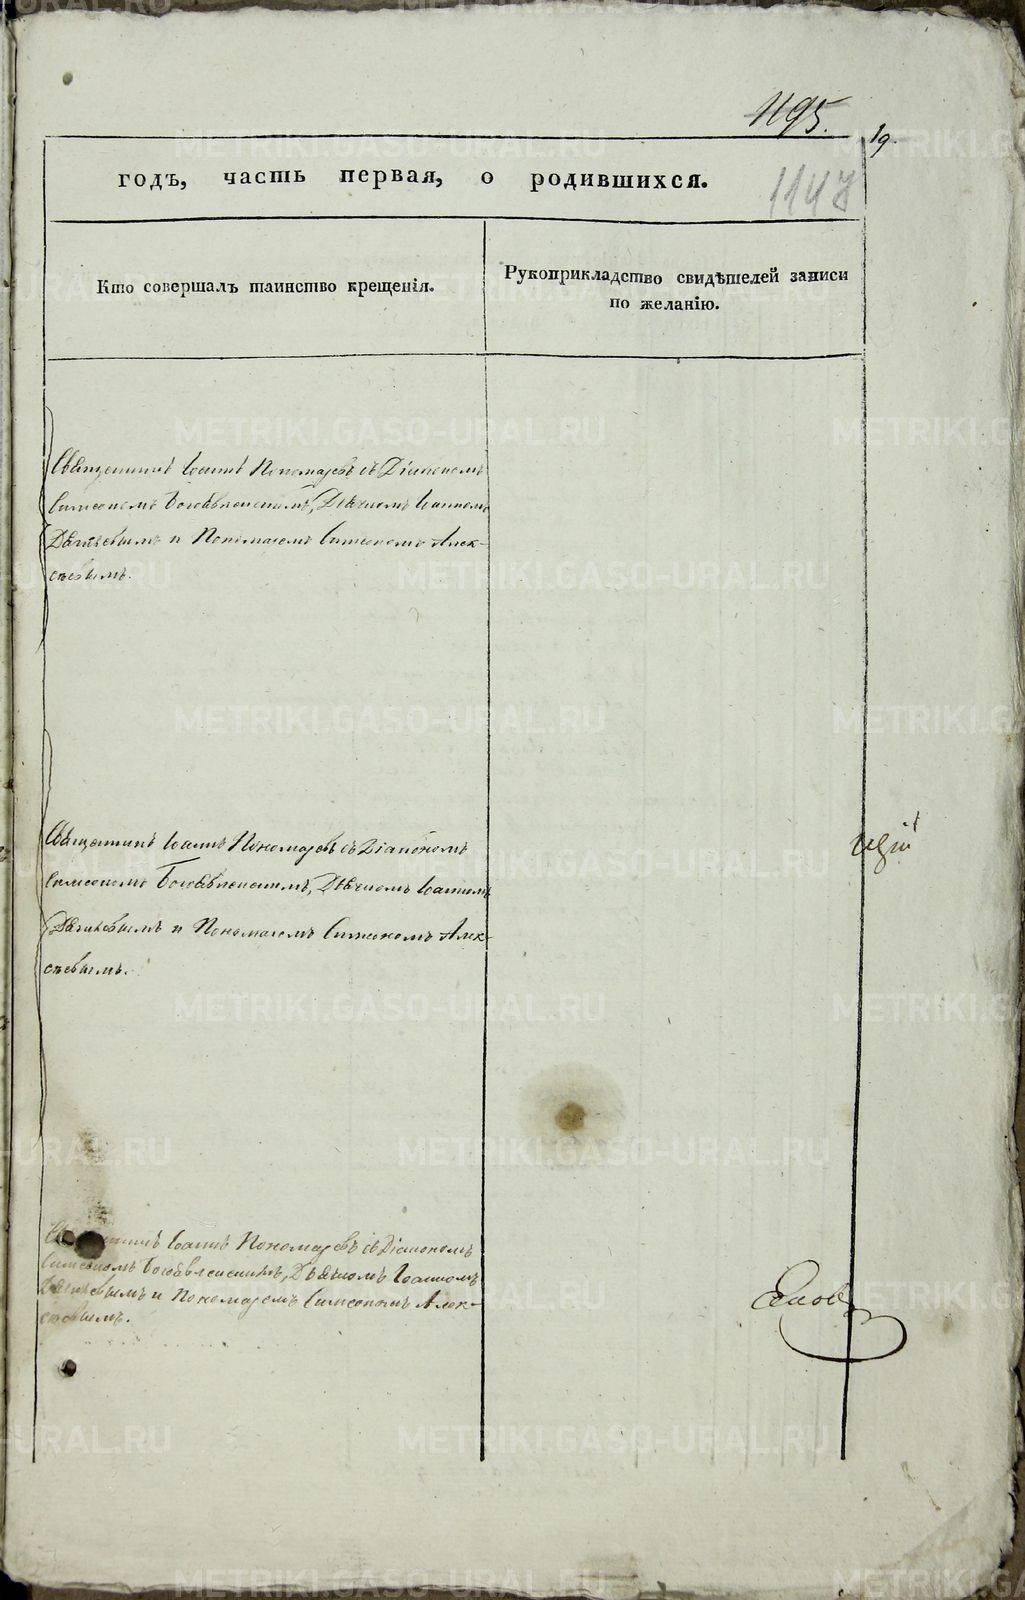 1195.
19.
годъ, часть первая, о родившихся.
1147
Кто совершалъ таинство крещенія.
Рукоприкладство свидѣтелей записи
по желанію.
Священникъ Іоаннъ Пономаревъ съ Діакономъ
Симеономъ Богоявленскимъ, Дьячкомъ Іоанномъ
и Пономаремъ Симеономъ Алек-
сѣевымъ.
Священникъ Іоаннъ Пономаревъ съ Діакономъ
Симеономъ Богоявленскимъ, Дьячкомъ Іоанномъ
и Пономаремъ Симеономъ Алек-
сѣевымъ.
Іоаннъ Пономаревъ съ Діакономъ
Симеономъ Богоявленскимъ, Дьячкомъ Іоанномъ
и Пономаремъ Симеономъ Алек-
сѣевымъ.
METRIKI.GASO-URAL.RU